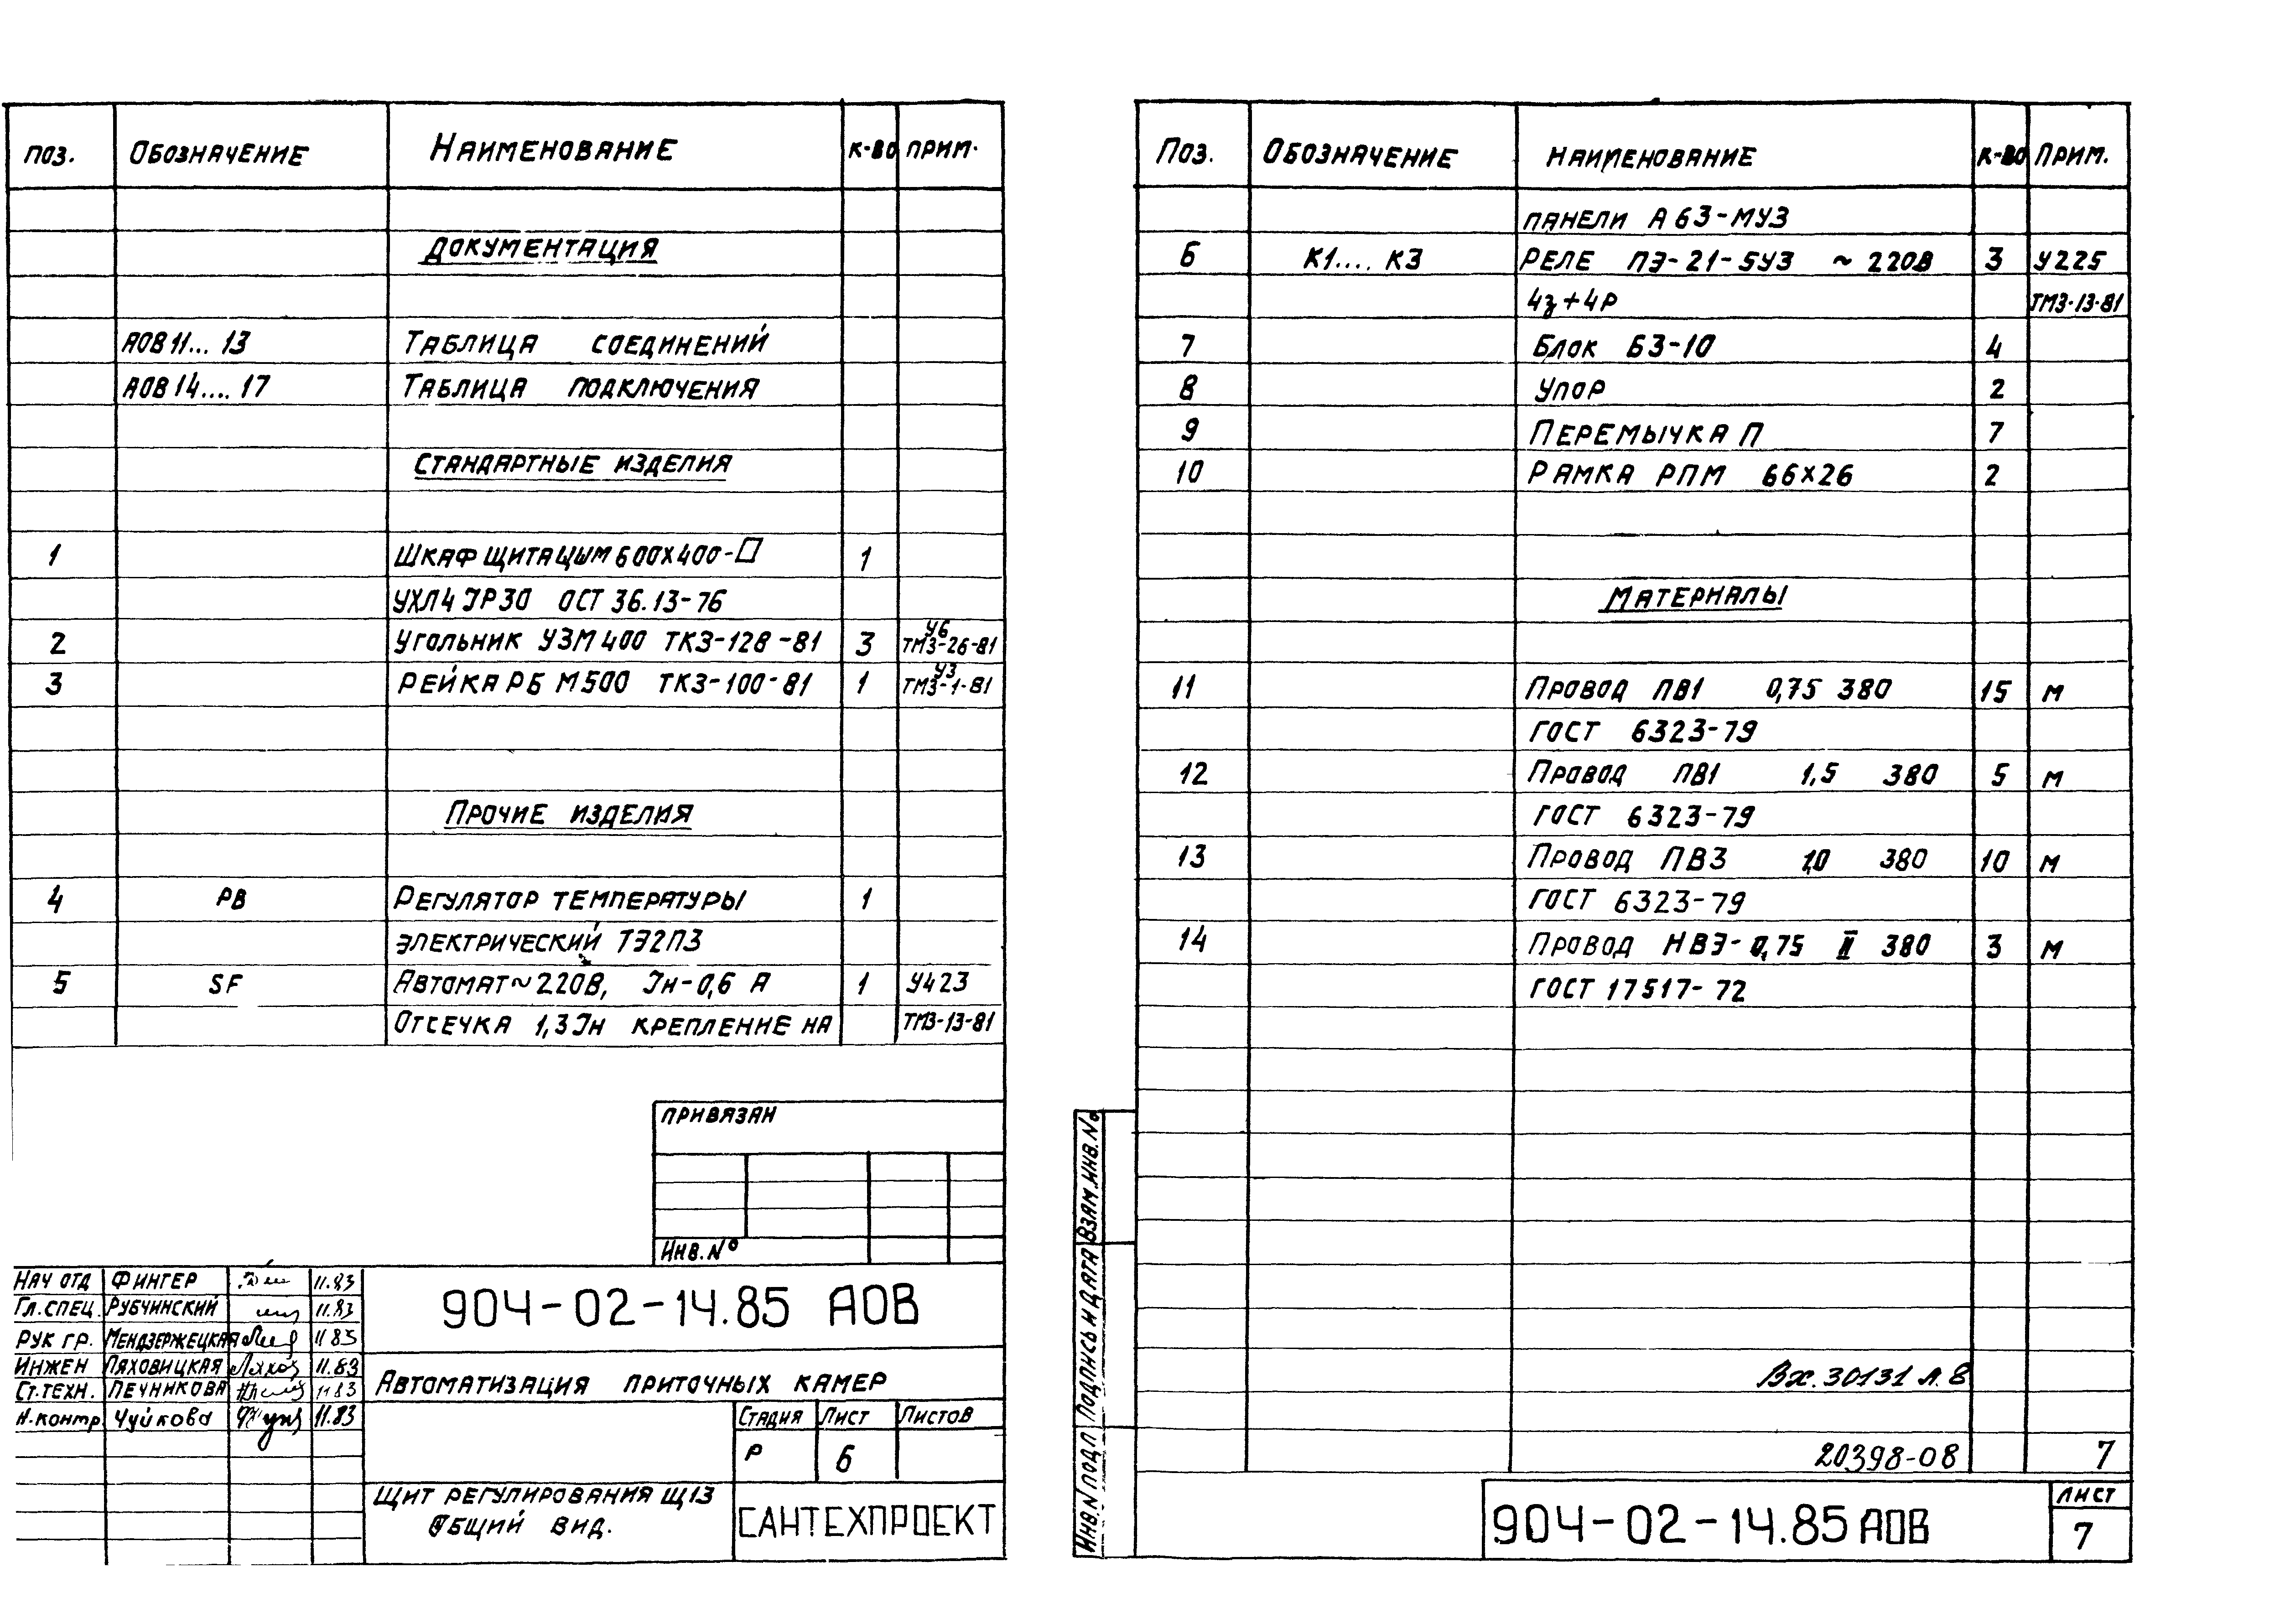 Поз. Обозначение Наименование К-во Прим.
Документация
АОВ 11... 13 Таблица соединений
АОВ 14.... 17 Таблица подключения
Стандартные изделия
1 Шкаф щита ЩШМ 600х400-□ 1
УХЛ4 IP30 ОСТ 36.13-76
2 Угольник УЗМ 400 ТК3-128-81 3 У6 ТМ3-26-81
3 Рейка РБ М500 ТК3-100-81 1 У3 ТМ3-1-81
Прочие изделия
4 РВ Регулятор температуры 1
электрический ТЭ2П3
5 SF Автомат ~ 220В, Iн-0,6 А 1 У423
Отсечка 1,3 Iн крепление на ТМ3-13-81
Привязан
Инв. №
Нач отд Фингер 11.83
Гл. спец. Рубчинский 11.83
Рук гр. Мендзержецкая 11 83
Инжен Ляховицкая 11.83
Ст. техн. Печникова 11 83
Н. контр. Чуйкова 11.83
904-02-14.85 АОВ
Автоматизация приточных камер
Стадия Лист Листов
Р 6
Щит регулирования Щ13
Общий вид.
САНТЕХПРОЕКТ
Поз. Обозначение Наименование К-во Прим.
панели А63-МУ3
6 К1.... К3 Реле ПЭ-21-5У3 ~ 220В 3 У225
4з+4р ТМ3-13-81
7 Блок БЗ-10 4
8 Упор 2
9 Перемычка П 7
10 Рамка РПМ 66х26 2
Материалы
11 Провод ПВ1 0,75 380 15 м
ГОСТ 6323-79
12 Провод ПВ1 1,5 380 5 м
ГОСТ 6323-79
13 Провод ПВ3 1,0 380 10 м
ГОСТ 6323-79
14 Провод НВЭ-0,75 II 380 3 м
ГОСТ 17517-72
Вх. 30131 л. 8
20398-08 7
Инв. № подл Подпись и дата Взам. инв. №
904-02-14.85 АОВ
Лист
7